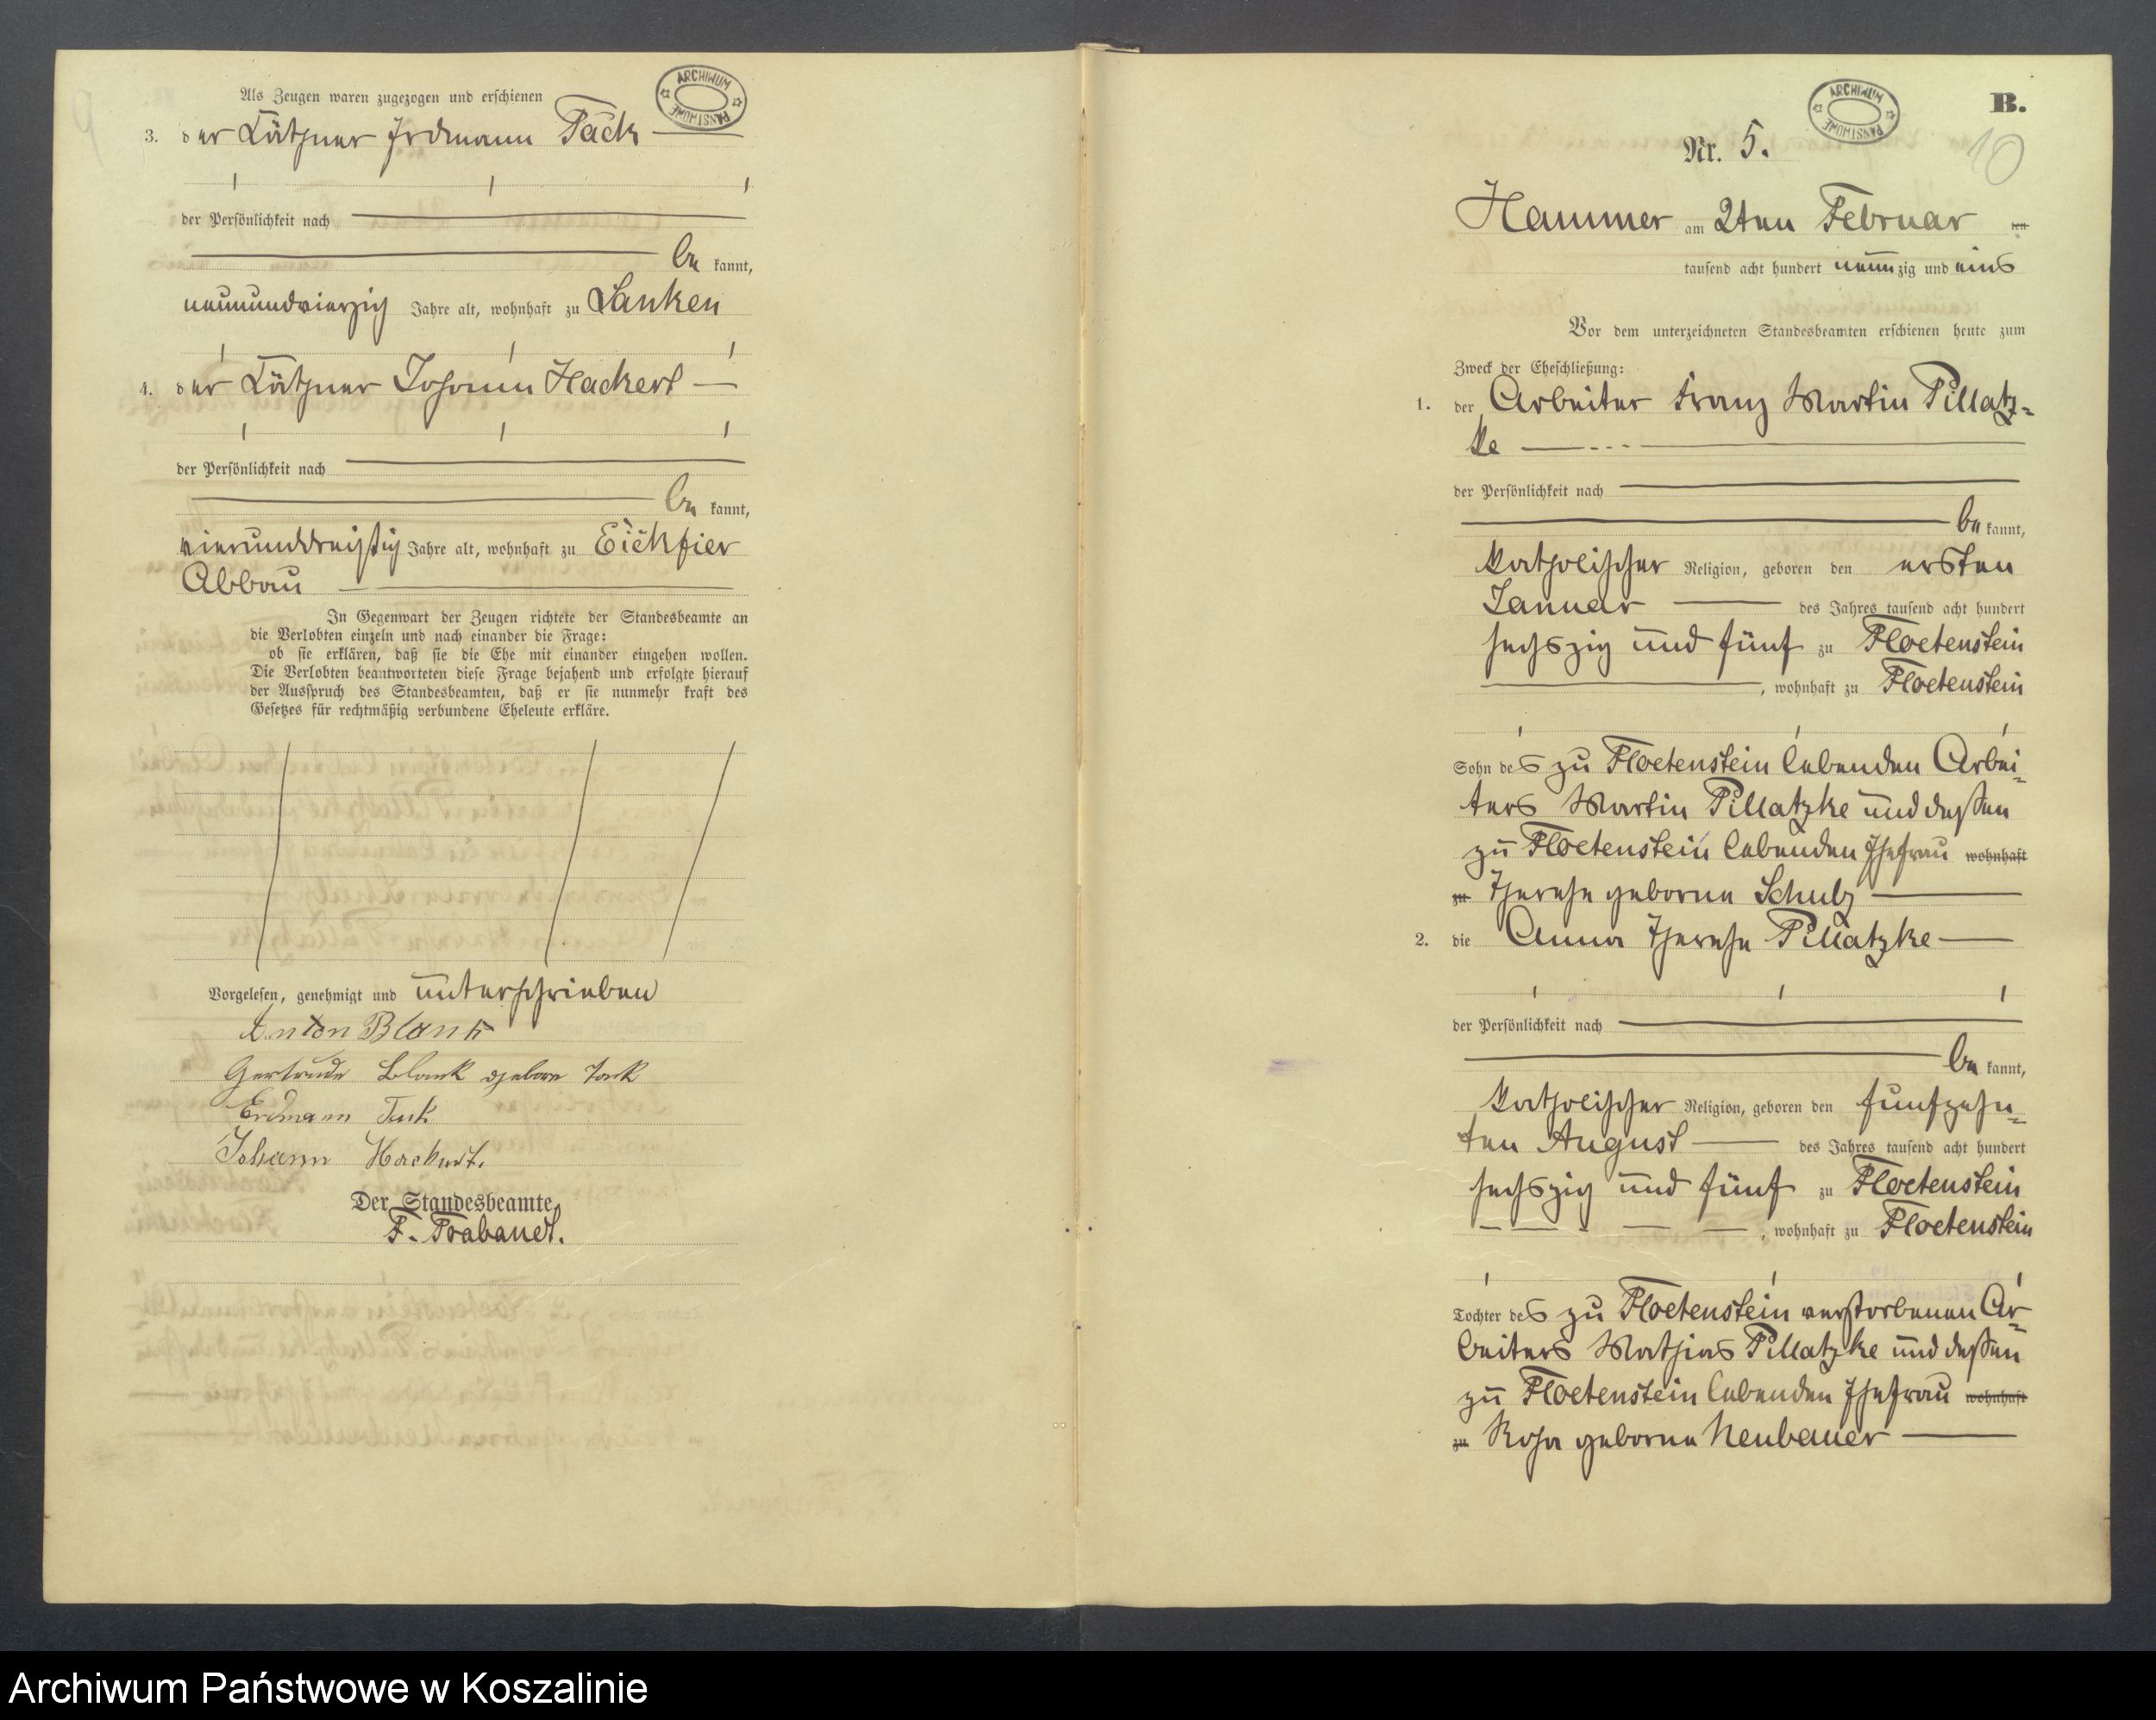 Als Zeugen waren zugezogen und erschienen
ARCHIWUM PAŃSTWOWE
3. der Käthner Erdmann Tack
der Persönlichkeit nach
be kannt,
neunundvierzig Jahre alt, wohnhaft zu Lanken
4. der Käthner Johann Hackert
der Persönlichkeit nach
be kannt,
vierunddreißig Jahre alt, wohnhaft zu Eickfier
Abbau
In Gegenwart der Zeugen richtete der Standesbeamte an
die Verlobten einzeln und nach einander die Frage:
ob sie erklären, daß sie die Ehe mit einander eingehen wollen.
Die Verlobten beantworteten diese Frage bejahend und erfolgte hierauf
der Ausspruch des Standesbeamten, daß er sie nunmehr kraft des
Gesetzes für rechtmäßig verbundene Eheleute erkläre.
Vorgelesen, genehmigt und unterschrieben
Anton Blank
Gertrude Blank geborn Tack
Erdmann Tack
Johann Hackert.
Der Standesbeamte.
F. Trabandt.
ARCHIWUM PAŃSTWOWE
B.
10
Nr. 5.
Hammer am 2ten Februar ten
tausend acht hundert neunzig und eins
Vor dem unterzeichneten Standesbeamten erschienen heute zum
Zweck der Eheschließung:
1. der Arbeiter Franz Martin Pillatz=
ke
der Persönlichkeit nach
be kannt,
katholischer Religion, geboren den ersten
Januar des Jahres tausend acht hundert
sechszig und fünf zu Floetenstein
, wohnhaft zu Floetenstein
Sohn des zu Floetenstein lebenden Arbei=
ters Martin Pillatzke und dessen
zu Floetenstein lebenden Ehefrau wohnhaft
zu Therese geborne Schulz
2. die Anna Therese Pillatzke
der Persönlichkeit nach
be kannt,
katholischer Religion, geboren den funfzehn=
ten August des Jahres tausend acht hundert
sechszig und fünf zu Floetenstein
, wohnhaft zu Floetenstein
Tochter des zu Floetenstein verstorbenen Ar=
beiters Mathias Pillatzke und dessen
zu Floetenstein lebenden Ehefrau wohnhaft
zu Rosa geborne Neubauer
Archiwum Państwowe w Koszalinie